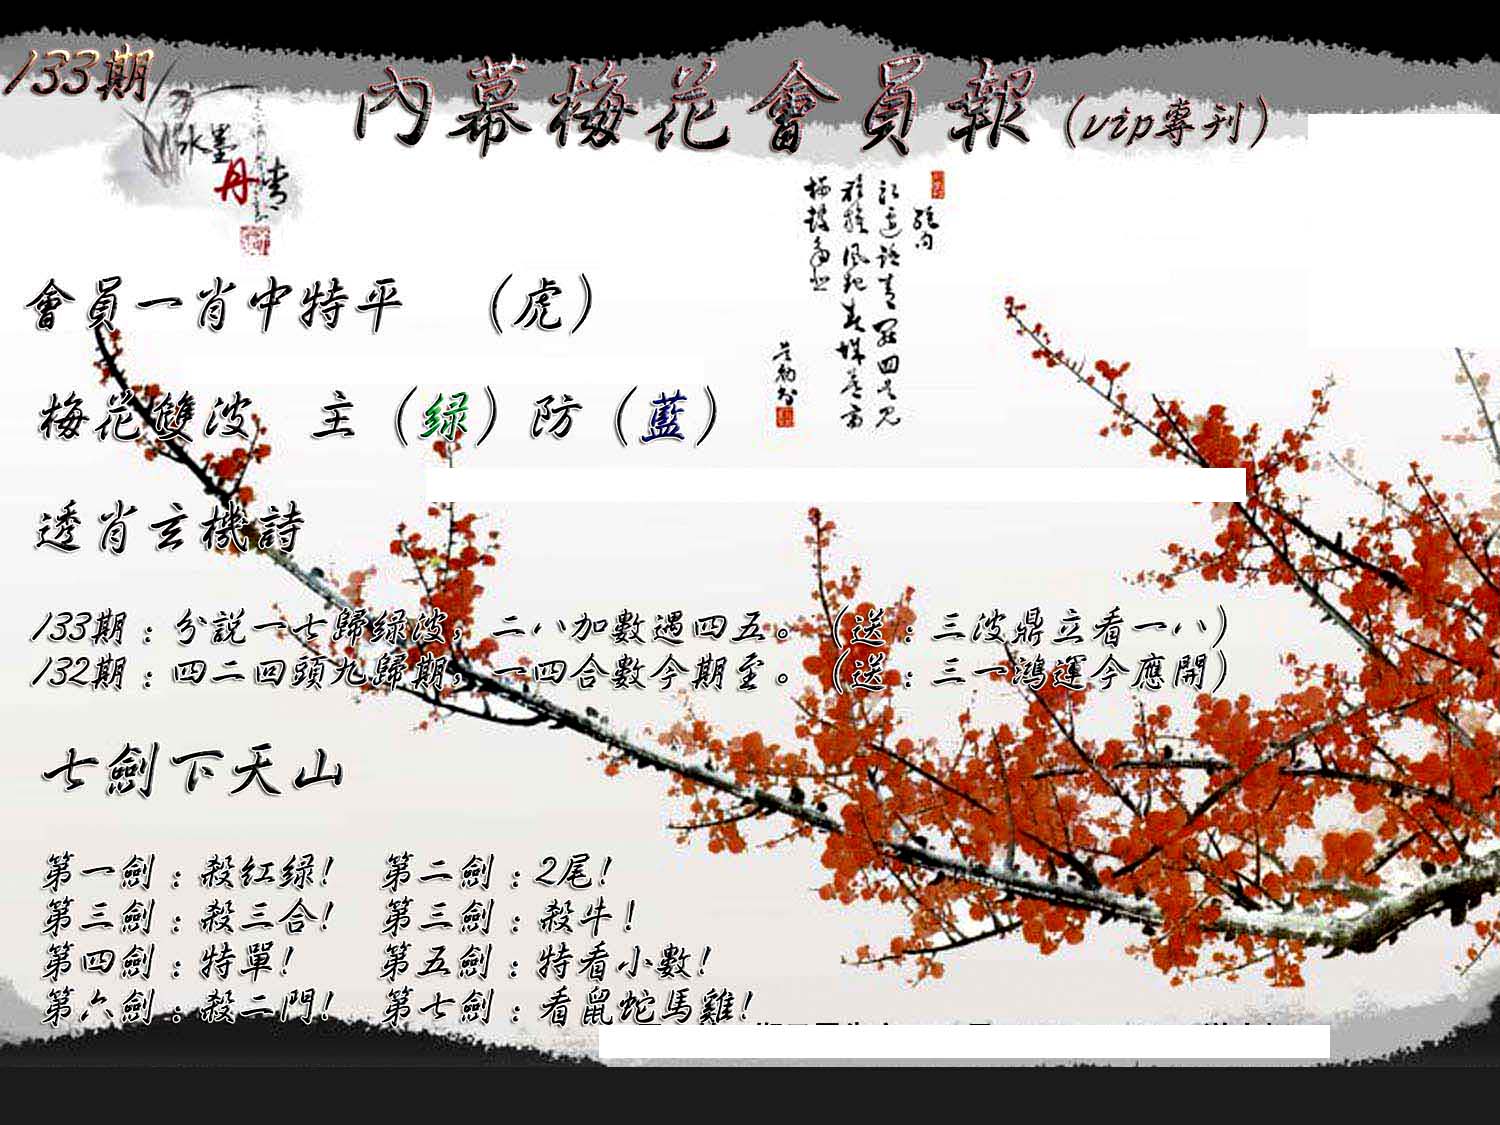 133期
內幕梅花會員報（vip專刊）
水墨
丹青
會員一肖中特平　（虎）
梅花雙波　主（绿）防（藍）
透肖玄機詩
133期：分説一七歸绿波，二八加數遇四五。（送：三波鼎立看一八）
132期：四二回頭九歸期，一四合數今期至。（送：三一鴻運今應開）
七劍下天山
第一劍：殺红绿！　第二劍：2尾！
第三劍：殺三合！　第三劍：殺牛！
第四劍：特單！　第五劍：特看小數！
第六劍：殺二門！　第七劍：看鼠蛇馬雞！